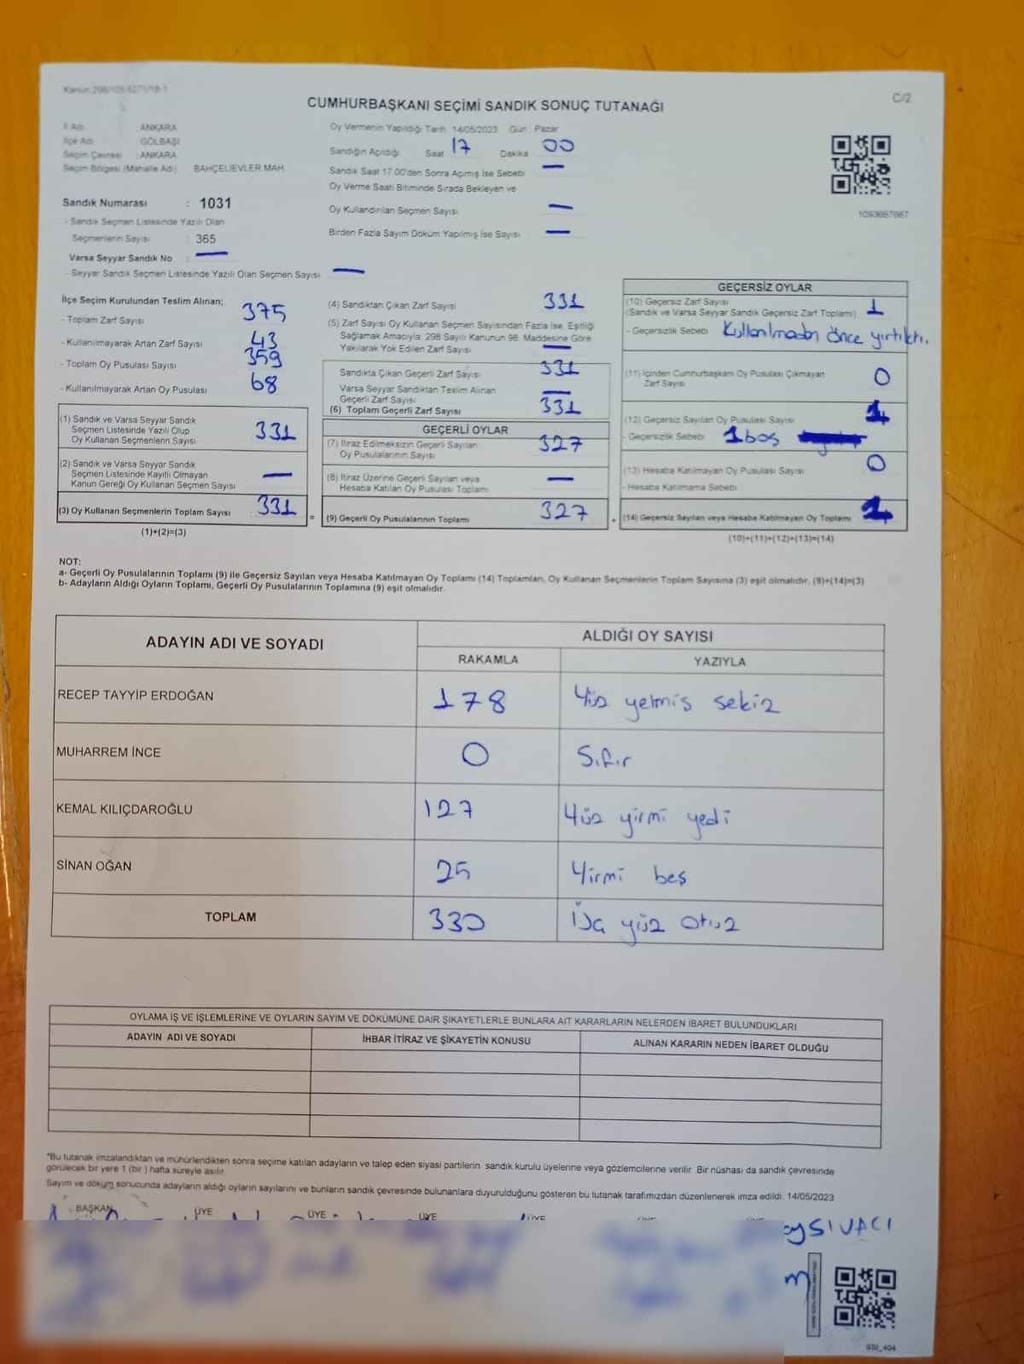 Kanun 298/105-6271/19-1
C/2
CUMHURBAŞKANI SEÇİMİ SANDIK SONUÇ TUTANAĞI
İl Adı ANKARA
İlçe Adı GÖLBAŞI
Seçim Çevresi : ANKARA
Seçim Bölgesi (Mahalle Adı) BAHÇELİEVLER MAH
Sandık Numarası : 1031
- Sandık Seçmen Listesinde Yazılı Olan
Seçmenlerin Sayısı : 365
Varsa Seyyar Sandık No : —
- Seyyar Sandık Seçmen Listesinde Yazılı Olan Seçmen Sayısı : —
Oy Vermenin Yapıldığı Tarih 14/05/2023 Gün Pazar
Sandığın Açıldığı Saat 17 Dakika 00
Sandık Saat 17.00'den Sonra Açılmış İse Sebebi —
Oy Verme Saati Bitiminde Sırada Bekleyen ve
Oy Kullandırılan Seçmen Sayısı —
Birden Fazla Sayım Döküm Yapılmış İse Sayısı —
İlçe Seçim Kurulundan Teslim Alınan;
- Toplam Zarf Sayısı 375
- Kullanılmayarak Artan Zarf Sayısı 43
- Toplam Oy Pusulası Sayısı 359
- Kullanılmayarak Artan Oy Pusulası 68
(1) Sandık ve Varsa Seyyar Sandık
Seçmen Listesinde Yazılı Olup
Oy Kullanan Seçmenlerin Sayısı 331
(2) Sandık ve Varsa Seyyar Sandık
Seçmen Listesinde Kayıtlı Olmayan
Kanun Gereği Oy Kullanan Seçmen Sayısı —
(3) Oy Kullanan Seçmenlerin Toplam Sayısı 331
(1)+(2)=(3)
(4) Sandıktan Çıkan Zarf Sayısı 331
(5) Zarf Sayısı Oy Kullanan Seçmen Sayısından Fazla İse, Eşitliği
Sağlamak Amacıyla; 298 Sayılı Kanunun 98. Maddesine Göre
Yakılarak Yok Edilen Zarf Sayısı —
Sandıkta Çıkan Geçerli Zarf Sayısı 331
Varsa Seyyar Sandıktan Teslim Alınan
Geçerli Zarf Sayısı —
(6) Toplam Geçerli Zarf Sayısı 331
GEÇERLİ OYLAR
(7) İtiraz Edilmeksizin Geçerli Sayılan
Oy Pusulalarının Sayısı 327
(8) İtiraz Üzerine Geçerli Sayılan veya
Hesaba Katılan Oy Pusulası Toplamı —
= (9) Geçerli Oy Pusulalarının Toplamı 327
1093667667
GEÇERSİZ OYLAR
(10) Geçersiz Zarf Sayısı
(Sandık ve Varsa Seyyar Sandık Geçersiz Zarf Toplamı) 1
- Geçersizlik Sebebi Kullanılmadan önce yırtıktı.
(11) İçinden Cumhurbaşkanı Oy Pusulası Çıkmayan
Zarf Sayısı 0
(12) Geçersiz Sayılan Oy Pusulası Sayısı
- Geçersizlik Sebebi 1 boş
(13) Hesaba Katılmayan Oy Pusulası Sayısı 0
- Hesaba Katılmama Sebebi
+ (14) Geçersiz Sayılan veya Hesaba Katılmayan Oy Toplamı
(10)+(11)+(12)+(13)=(14)
NOT:
a- Geçerli Oy Pusulalarının Toplamı (9) ile Geçersiz Sayılan veya Hesaba Katılmayan Oy Toplamı (14) Toplamları, Oy Kullanan Seçmenlerin Toplam Sayısına (3) eşit olmalıdır. (9)+(14)=(3)
b- Adayların Aldığı Oyların Toplamı, Geçerli Oy Pusulalarının Toplamına (9) eşit olmalıdır.
ADAYIN ADI VE SOYADI
ALDIĞI OY SAYISI
RAKAMLA YAZIYLA
RECEP TAYYİP ERDOĞAN 178 Yüz yetmiş sekiz
MUHARREM İNCE 0 Sıfır
KEMAL KILIÇDAROĞLU 127 Yüz yirmi yedi
SİNAN OĞAN 25 Yirmi beş
TOPLAM 330 yüz otuz
OYLAMA İŞ VE İŞLEMLERİNE VE OYLARIN SAYIM VE DÖKÜMÜNE DAİR ŞİKAYETLERLE BUNLARA AİT KARARLARIN NELERDEN İBARET BULUNDUKLARI
ADAYIN ADI VE SOYADI İHBAR İTİRAZ VE ŞİKAYETİN KONUSU ALINAN KARARIN NEDEN İBARET OLDUĞU
*Bu tutanak imzalandıktan ve mühürlendikten sonra seçime katılan adayların ve talep eden siyasi partilerin sandık kurulu üyelerine veya gözlemcilerine verilir. Bir nüshası da sandık çevresinde
görülecek bir yere 1 (bir) hafta süreyle asılır.
Sayım ve döküm sonucunda adayların aldığı oyların sayılarını ve bunların sandık çevresinde bulunanlara duyurulduğunu gösteren bu tutanak tarafımızdan düzenlenerek imza edildi. 14/05/2023
BAŞKAN ÜYE ÜYE ÜYE ÜYE
SIVACI
SSI_404